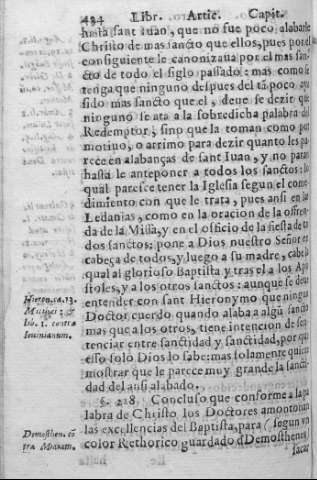 434 Libr. Artic. Capit.
hasta sant Iuan, que no fue poco alabarle
Christo de mas sancto que ellos, pues por el
consiguiente le canonizaua por el mas san-
cto de todo el siglo passado: mas como se
tenga que ninguno despues del tã poco aya
sido mas sancto que el, deue se dezir que
ninguno se ata a la sobredicha palabra del
Redemptor, sino que la toman como por
motiuo, o arrimo para dezir quanto les pa-
rece en alabanças de sant Iuan, y no paran
hasta le anteponer a todos los sanctos: lo
qual paresce tener la Iglesia segun el come
dimiento con que le trata, pues ansi en las
Ledanias, como en la oracion de la offren-
da de la Missa, y en el officio de la fiesta de to
dos sanctos: pone a Dios nuestro Señor en
cabeça de todos, y luego a su madre, cabe la
qual al glorioso Baptista y tras el a los Apo
stoles, y a los otros sanctos: aunque se deue
entender con sant Hieronymo que ningun
Doctor cuerdo quando alaba a algũ sancto
mas que a los otros, tiene intencion de sen-
tenciar entre sanctidad y sanctidad, porque
esso solo Dios lo sabe: mas solamente quiere
mostrar que le parece muy grande la sancti-
dad del ansi alabado.
§. 218. Concluso que conforme a la pa
labra de Christo los Doctores amontonan
las excellencias del Baptista, para (segun vn
color Rethorico guardado d Demosthenes)
sacar
Hieron. ca. 13.
Matthei: &
lib. 1. contra
Iouinianum.
Demosthen. cõ
tra Midiam.